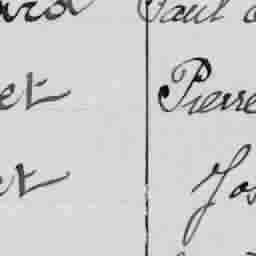 ard Paul
et Pierre
et Jos